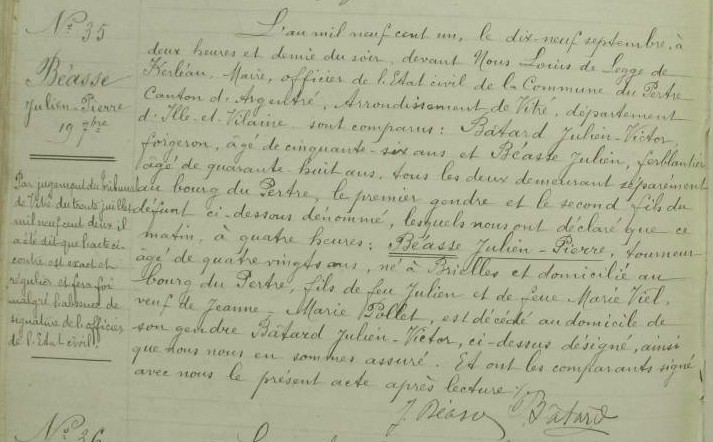 N° 35
Béasse
Julien-Pierre
19 7bre
Par jugement du Tribunal
de Vitré du trente juillet
mil neuf cent deux il
a été dit que l'acte ci-
contre est exact et
régulier et fera foi
malgré l'absence de
signature de l'officier
de l'Etat civil.
L'an mil neuf cent un, le dix-neuf septembre, à
deux heures et demie du soir, devant Nous Louis de Legge de
Kerléan, Maire, officier de l'Etat civil de la Commune du Pertre
Canton d'Argentré, Arrondissement de Vitré, département
d'Ille-et-Vilaine sont comparus : Bâtard Julien-Victor,
forgeron, âgé de cinquante-six ans et Béasse Julien, ferblantier
âgé de quarante-huit ans, tous les deux demeurant séparément
au bourg du Pertre, le premier gendre et le second fils du
défunt ci-dessous dénommé, lesquels nous ont déclaré que ce
matin, à quatre heures : Béasse Julien-Pierre, tourneur
âgé de quatre vingts ans, né à Brielles et domicilié au
bourg du Pertre, fils de feu Julien et de feue Marie Viel,
veuf de Jeanne-Marie Pollet, est décédé au domicile de
son gendre Bâtard Julien-Victor, ci-dessus désigné, ainsi
que nous nous en sommes assuré. Et ont les comparants signé
avec nous le présent acte après lecture
J Béasse Bâtard
N° 36